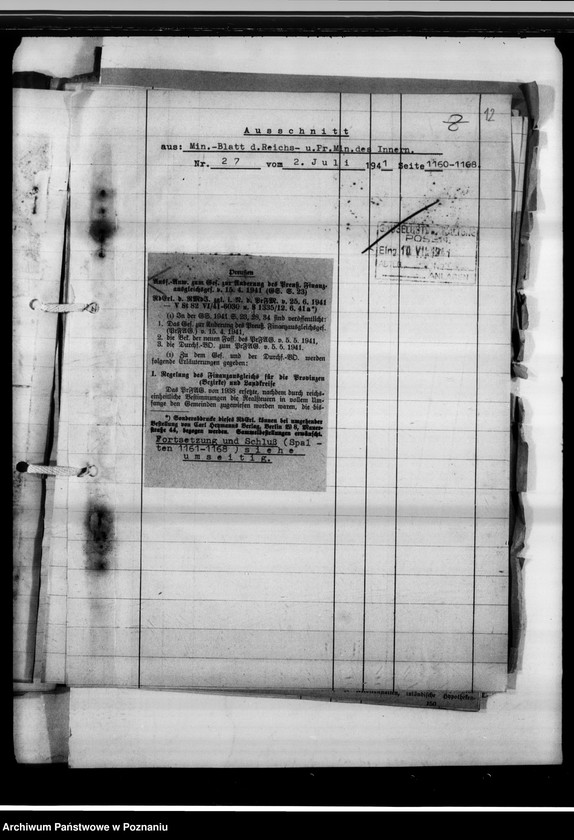 12
Ausschnitt
aus: Min.-Blatt d.Reichs- u.Pr.Min.des Innern.
Nr. 27 vom 2. Juli 1941 Seite 1160-1168.
POSEN
Eing. 10. VII. 1941
ANLAGEN
Preußen
Ausf.-Anw. zum Ges. zur Änderung des Preuß. Finanz-
ausgleichsges. v. 15. 4. 1941 (GS. S. 23)
RdErl. d. RMdJ. zgl. i. N. d. PrFM. v. 25. 6. 1941
— V St 82 VI/41-6030 u. § 1235/12. 6. 41a*)
(1) In der GS. 1941 S. 23, 28, 34 sind veröffentlicht:
1. Das Ges. zur Änderung des Preuß. Finanzausgleichsges.
(PrFAG.) v. 15. 4. 1941,
2. die Bek. der neuen Fass. des PrFAG. v. 5. 5. 1941,
3. die Durchf.-VO. zum PrFAG. v. 5. 5. 1941.
(2) Zu dem Ges. und der Durchf.-VO. werden
folgende Erläuterungen gegeben:
I. Regelung des Finanzausgleichs für die Provinzen
(Bezirke) und Landkreise
Das PrFAG. von 1938 ersetzte, nachdem durch reichs-
einheitliche Bestimmungen die Realsteuern in vollem Um-
fange den Gemeinden zugewiesen worden waren, die bis-
*) Sonderabdrucke dieses RdErl. können bei umgehender
Bestellung von Carl Heymanns Verlag, Berlin W 8, Mauer-
straße 44, bezogen werden. Sammelbestellungen erwünscht.
Fortsetzung und Schluß (Spal-
ten 1161-1168) siehe
umseitig.
ausländische Hypotheken
Archiwum Państwowe w Poznaniu